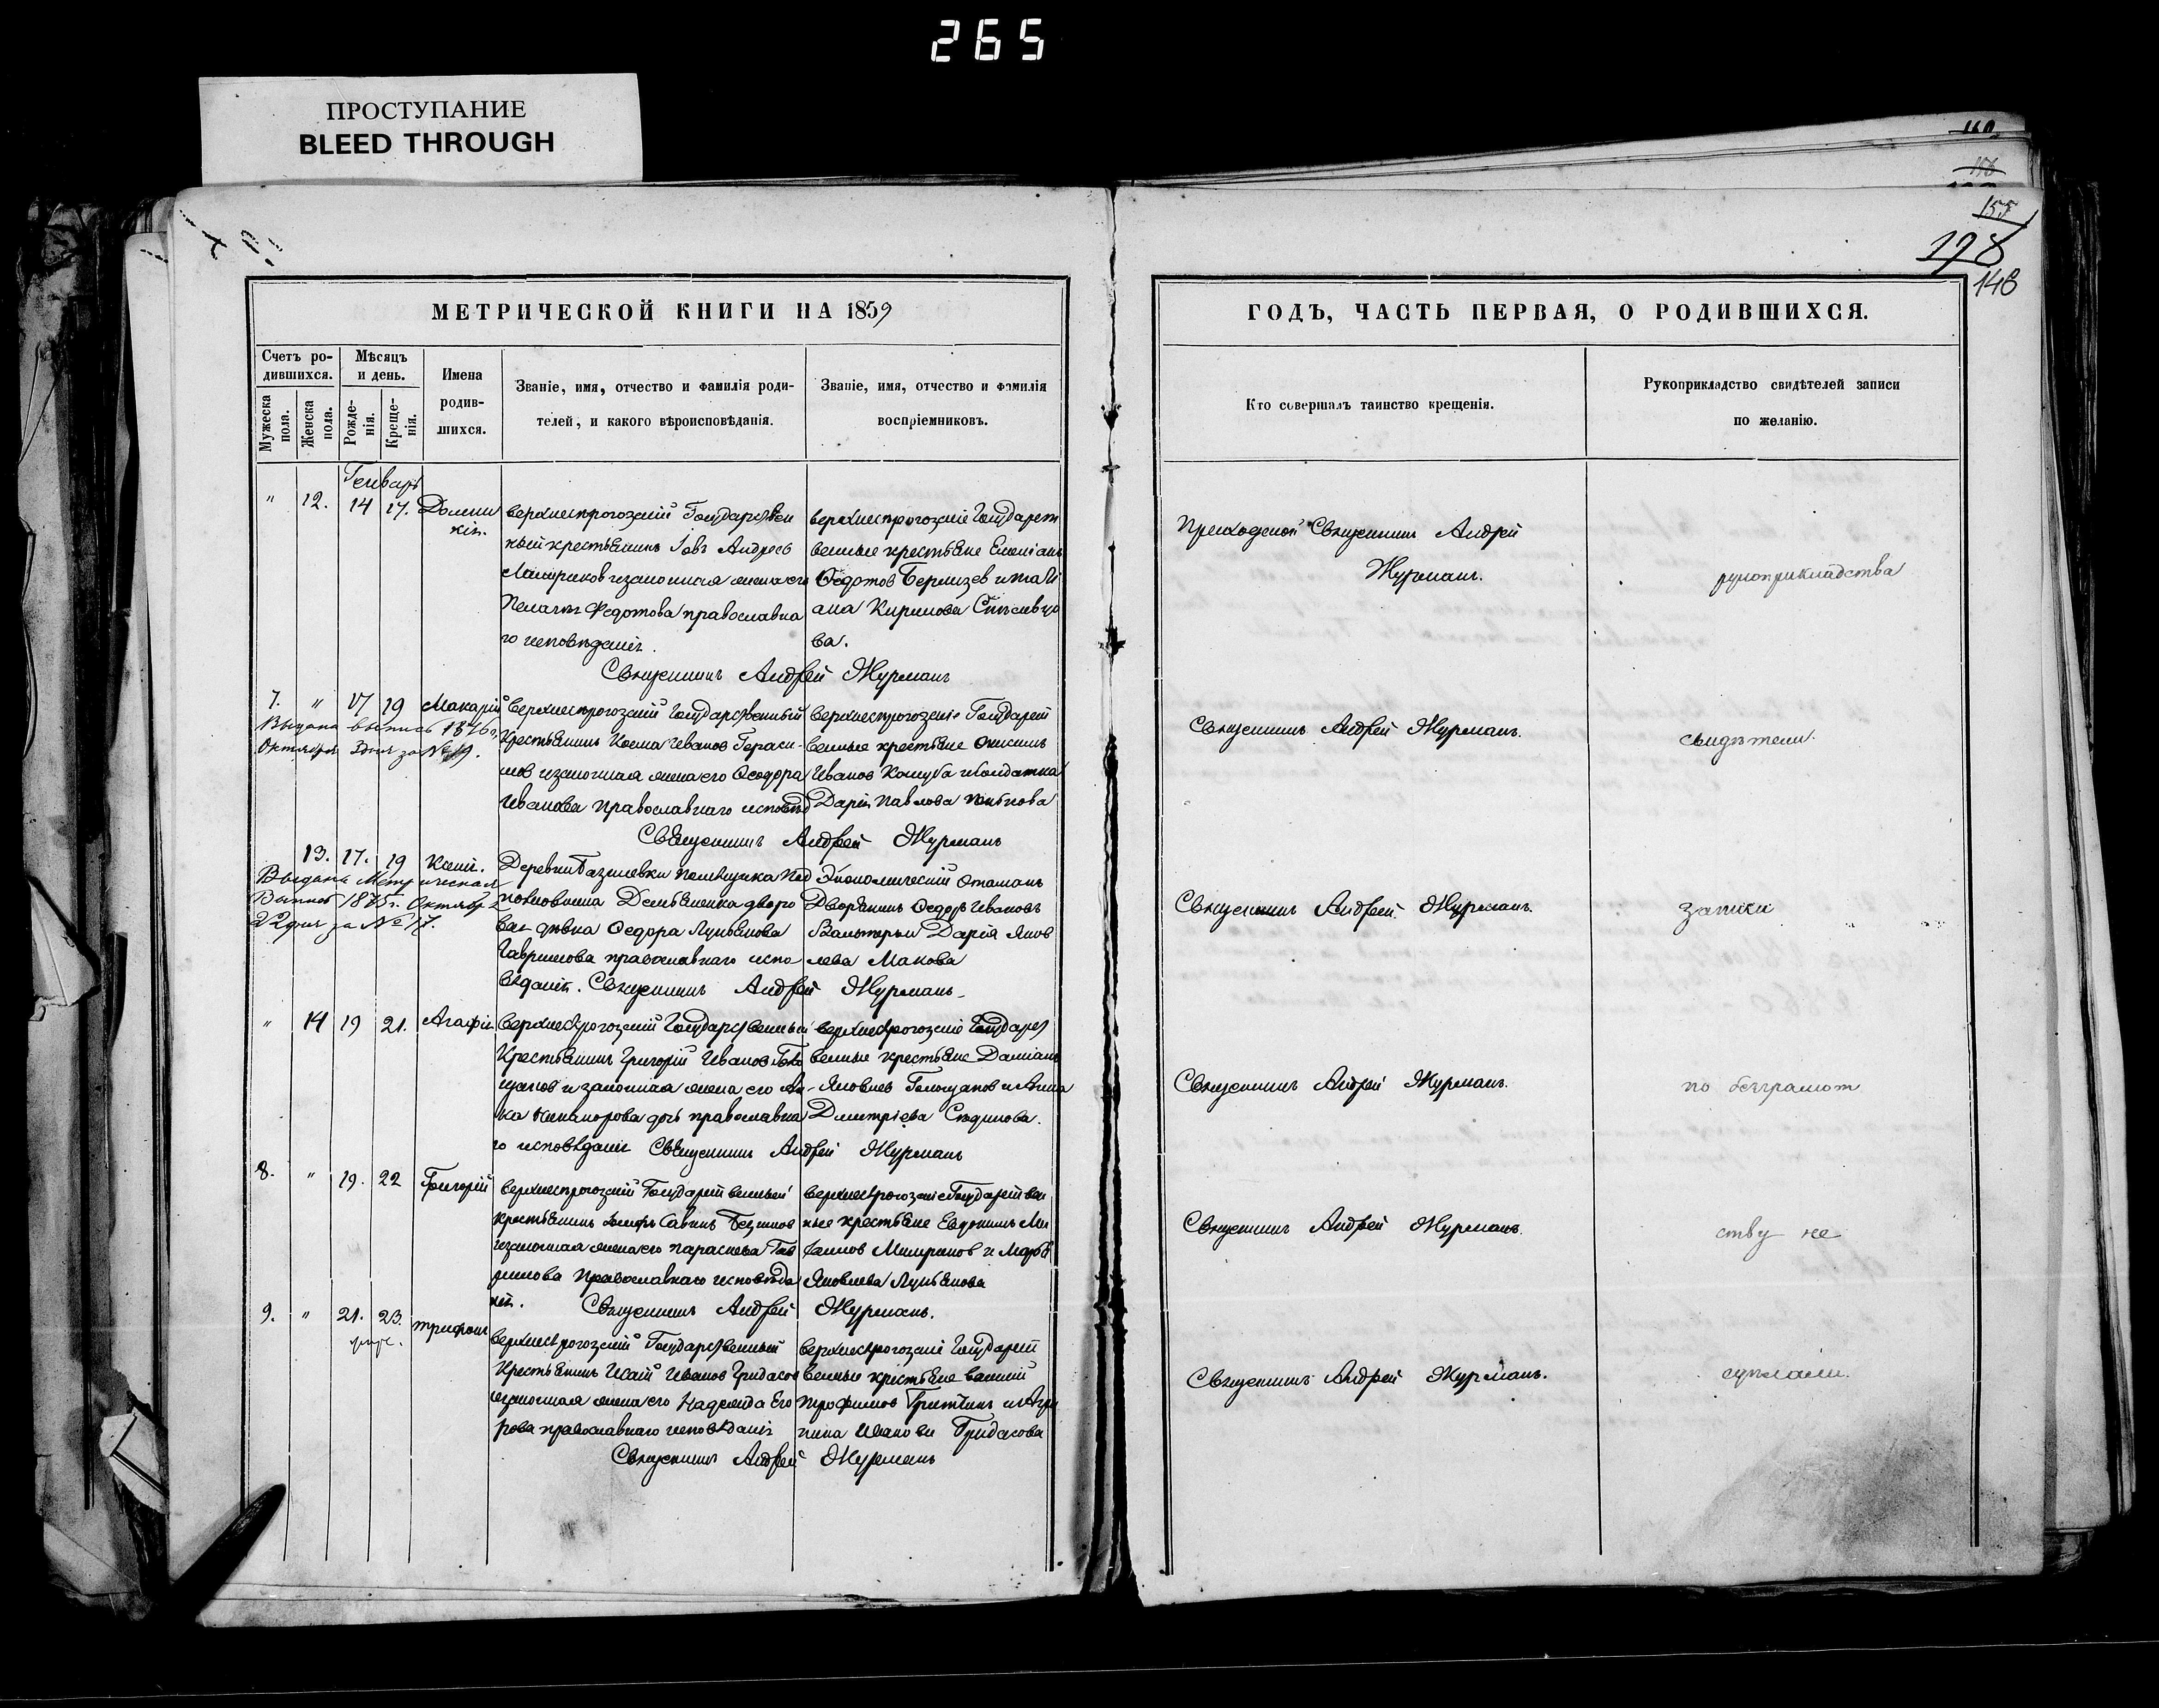 265
ПРОСТУПАНИЕ
BLEED THROUGH
110.
156
155
198
146
МЕТРИЧЕСКОЙ КНИГИ НА 1859
ГОДЪ, ЧАСТЬ ПЕРВАЯ, О РОДИВШИХСЯ.
Счетъ ро-
дившихся.
Мужеска пола.
Женска пола.
Мѣсяцъ
и день.
Рожде-
нія.
Креще-
нія.
Имена
родив-
шихся.
Званіе, имя, отчество и фамилія роди-
телей, и какого вѣроисповѣданія.
Званіе, имя, отчество и фамилія
воспріемниковъ.
Кто совершалъ таинство крещенія.
Рукоприкладство свидѣтелей записи
по желанію.
Генварь
" 12. 14 17. Домни
кія.
верхнерогозскій Государствен
ный крестьянинъ Іовъ Андреевъ
и законная жена его
Пелагія Федотова православна
го исповѣданія.
верхнерогозскіе Государст
венные крестьяне Емеліанъ
Ѳедотов
Кирилова
ва.
Приходской Священникъ Андрей
Журманъ.
рукоприкладства
Священникъ Андрей Журманъ
7. " 17 19 Макарій
Выдана выпись 1876 г.
Октября 3 дня за № 19.
Верхнерогозскій Государственный
Крестьянинъ Косма Иванов Гераси-
мов и законная жена его Ѳеодора
Иванова Православнаго исповѣд
Верхнерогозскіе Государст
венные крестьяне Онисимъ
Иванов и солдатка
Дарія Павлова
Священникъ Андрей Журманъ.
свидѣтели.
Священникъ Андрей Журманъ
13. 17. 19 Ксенія.
Выдана Метрическая
Выпись 1875 г. Октября
22 дня за № 17.
Деревни помѣщика Под
полковника дворо
вая дѣвка Ѳедора Лукьянова
Гаврилова православнаго испо
вѣданія. Священникъ Андрей Журманъ
Экономическій отаманъ
Дворянинъ Ѳедоръ Ивановъ
Дарія Яков
лева Макова
Священникъ Андрей Журманъ.
записи
" 14 19 21. Агафія
Верхнерогозскій Государственный
Крестьянинъ Григорій Иванов Голо
щапов и законная жена его Ан-
на Никанорова дочь православна
го исповѣданія Священникъ Андрей Журманъ
верхнерогозскіе Государст
венные крестьяне Даміанъ
Яковлев Голощапов и Анна
Дмитріева
Священникъ Андрей Журманъ.
по безграмот
8. " 19. 22 Григорій
верхнерогозскій Государственный
крестьянинъ Іосифъ Савинъ
и законная жена его Параскева Гав
рилова Православнаго исповѣда
нія. Священникъ Андрей Журманъ.
верхнерогозскіе Государствен
ные крестьяне Евдокимъ Ми
хаилов и Марѳа
Яковлева Лукьянова
Священникъ Андрей Журманъ.
ству не
9. " 21. 23. Трифонъ
верхнерогозскій Государственный
Крестьянинъ Исаій Иванов Гридасов
и законная жена его Надежда Его
рова православнаго исповѣданія
Священникъ Андрей Журманъ
верхнерогозскіе Государст
венные крестьяне Василій
Трофимов и Агри
пина Иванова Гридасова
Священникъ Андрей Журманъ.